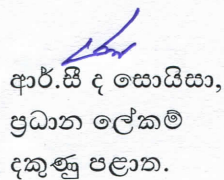 ආර්.සී ද සොයිසා,
ප්‍රධාන ලේකම්
දකුණු පළාත.